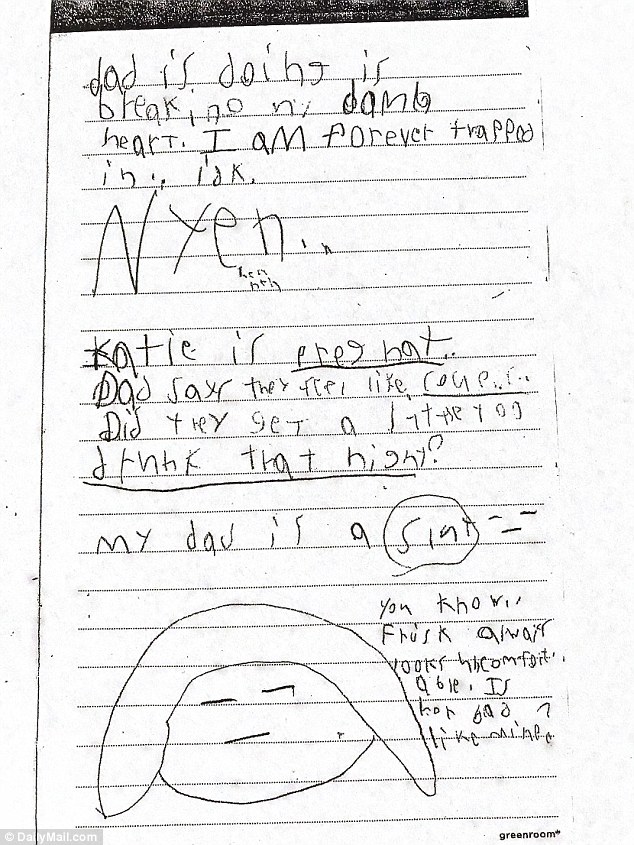 dad is doing is
breaking my damb
heart. I am forever trapped
in..
Nyeh...
heh
heh
Katie is pregnat..
Dad says they feel like
Did they get a little too
drunk that night?
my dad is a
You know..
Frisk always
looks uncomfort..
able. Is
her dad
like mine
© DailyMail.com
greenroom*